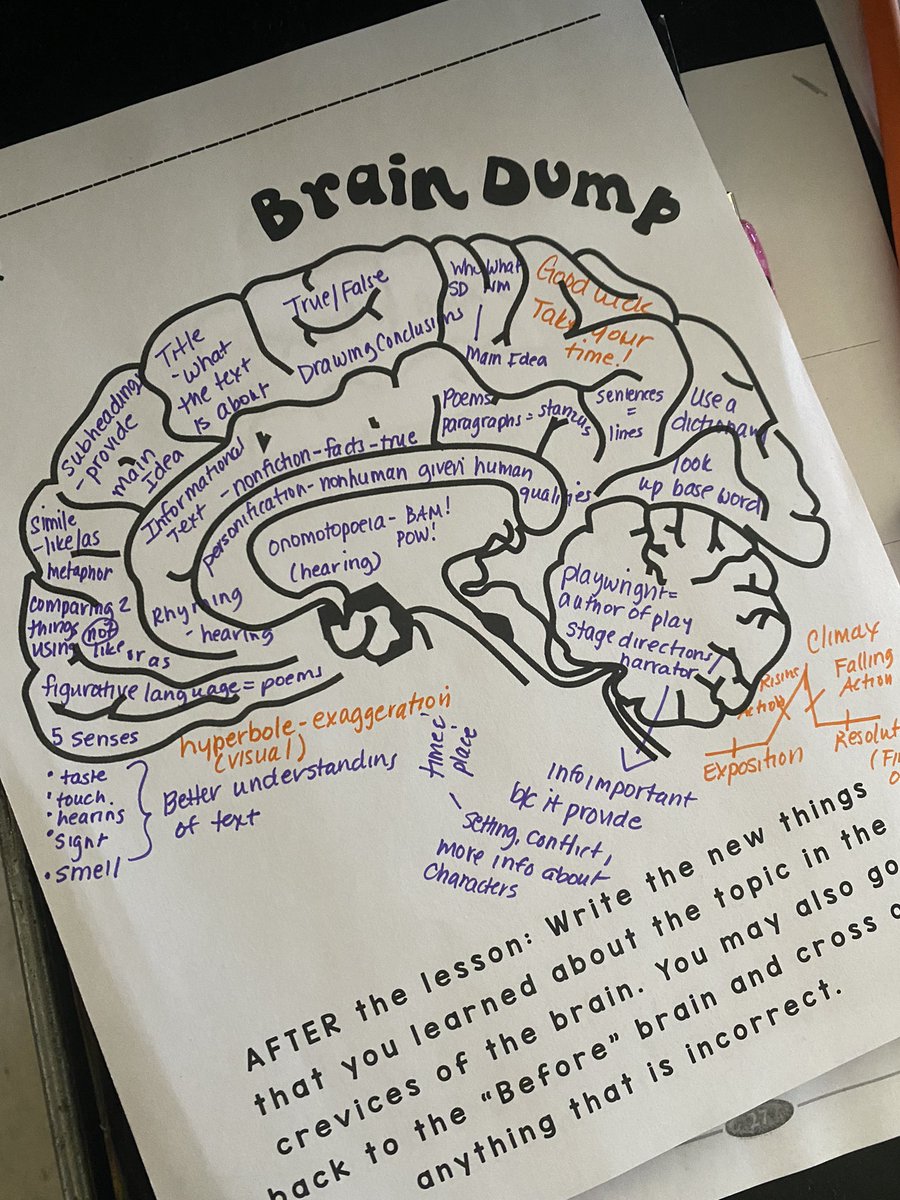 Brain Dump
True/False
Drawing Conclusions
Who What
SD
Main Idea
Good luck
Take your
time!
Title
- what
the text
is about
subheading
- provide
main
idea
Simile
- like/as
metaphor
comparing 2
things not
using like or as
Informational
Text - nonfiction - facts - true
personification - nonhuman given human
qualities
onomotopoeia - BAM!
POW!
(hearing)
Rhyming
- hearing
figurative language = poems
5 senses
• taste
• touch
• hearing
• sight
• smell
Better understanding
of text
hyperbole - exaggeration
(visual)
Poems
paragraphs =
sentences
=
lines
Use a
dictionary
look
up base word
playwright =
author of play
stage directions/
narrator
Info important
b/c it provide
time &
place
- Setting, conflict,
more info about
characters
Exposition
Rising
Action
Climax
Falling
Action
AFTER the lesson: Write the new things
that you learned about the topic in the
crevices of the brain. You may also go
back to the "Before" brain and cross
anything that is incorrect.
27